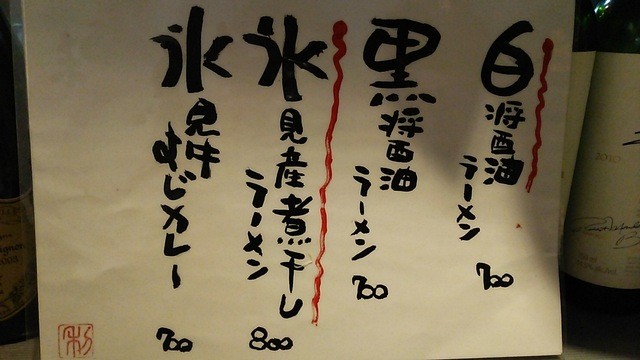 白醤油
ラーメン
700
黒醤油
ラーメン
700
氷見産煮干し
ラーメン
800
氷見牛
すじカレー
700
彩
2010